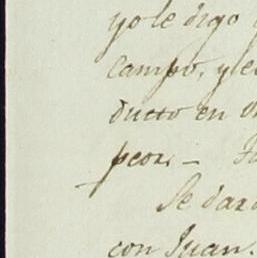 yo le digo
campo, y e
ducto en
peor. –
Se dar
con Juan.